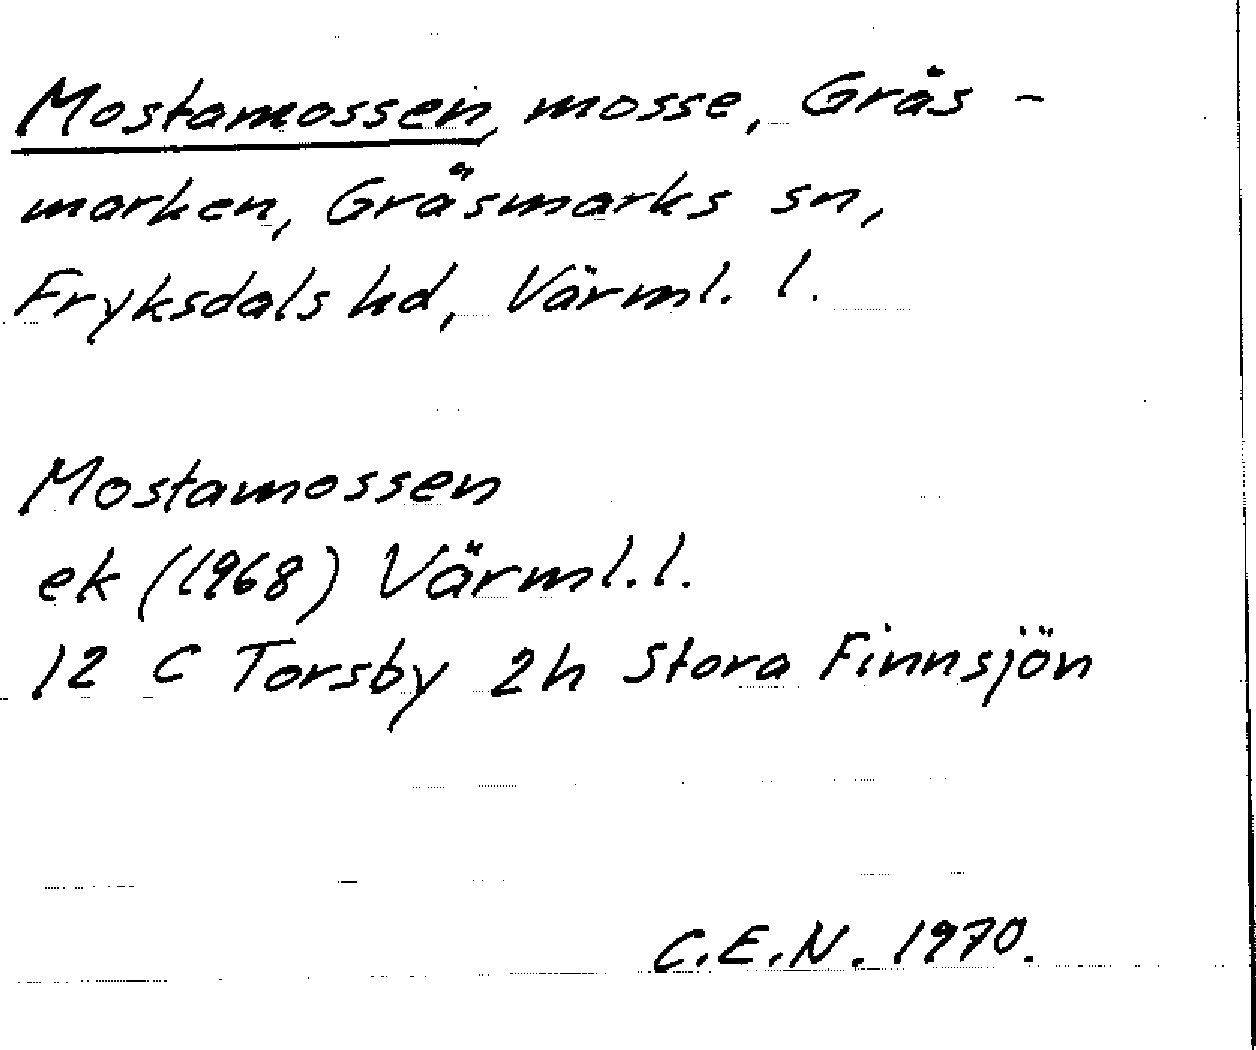 Mostamossen, mosse, Gräs-
marken, Gräsmarks sn,
Fryksdals hd, Värml. l.
Mostamossen
ek (1968) Värml. l.
12 C Torsby 2h Stora Finnsjön
C.E.N. 1970.